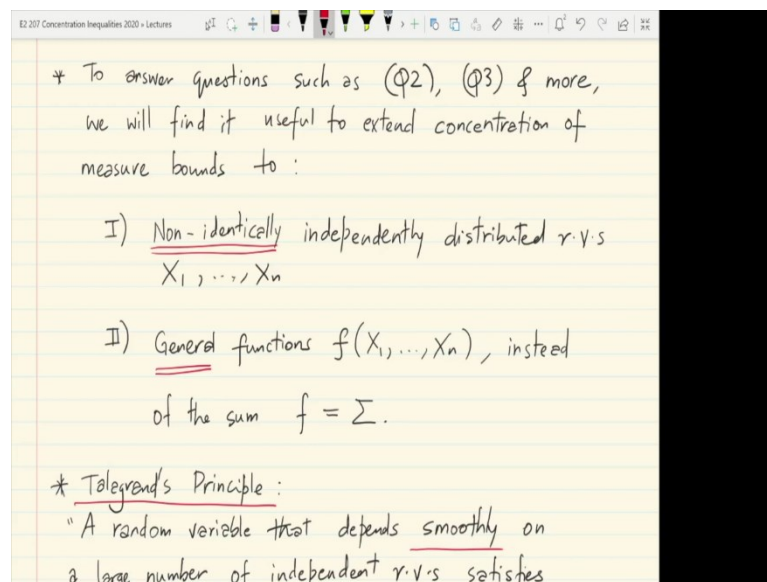 E2 207 Concentration Inequalities 2020 » Lectures
* To answer questions such as (Q2), (Q3) & more,
we will find it useful to extend concentration of
measure bounds to :
I) Non-identically independently distributed r.v.s
X₁, ..., Xₙ
II) General functions f(X₁, ..., Xₙ), instead
of the sum f = Σ.
* Talagrand's Principle :
"A random variable that depends smoothly on
a large number of independent r.v.s satisfies